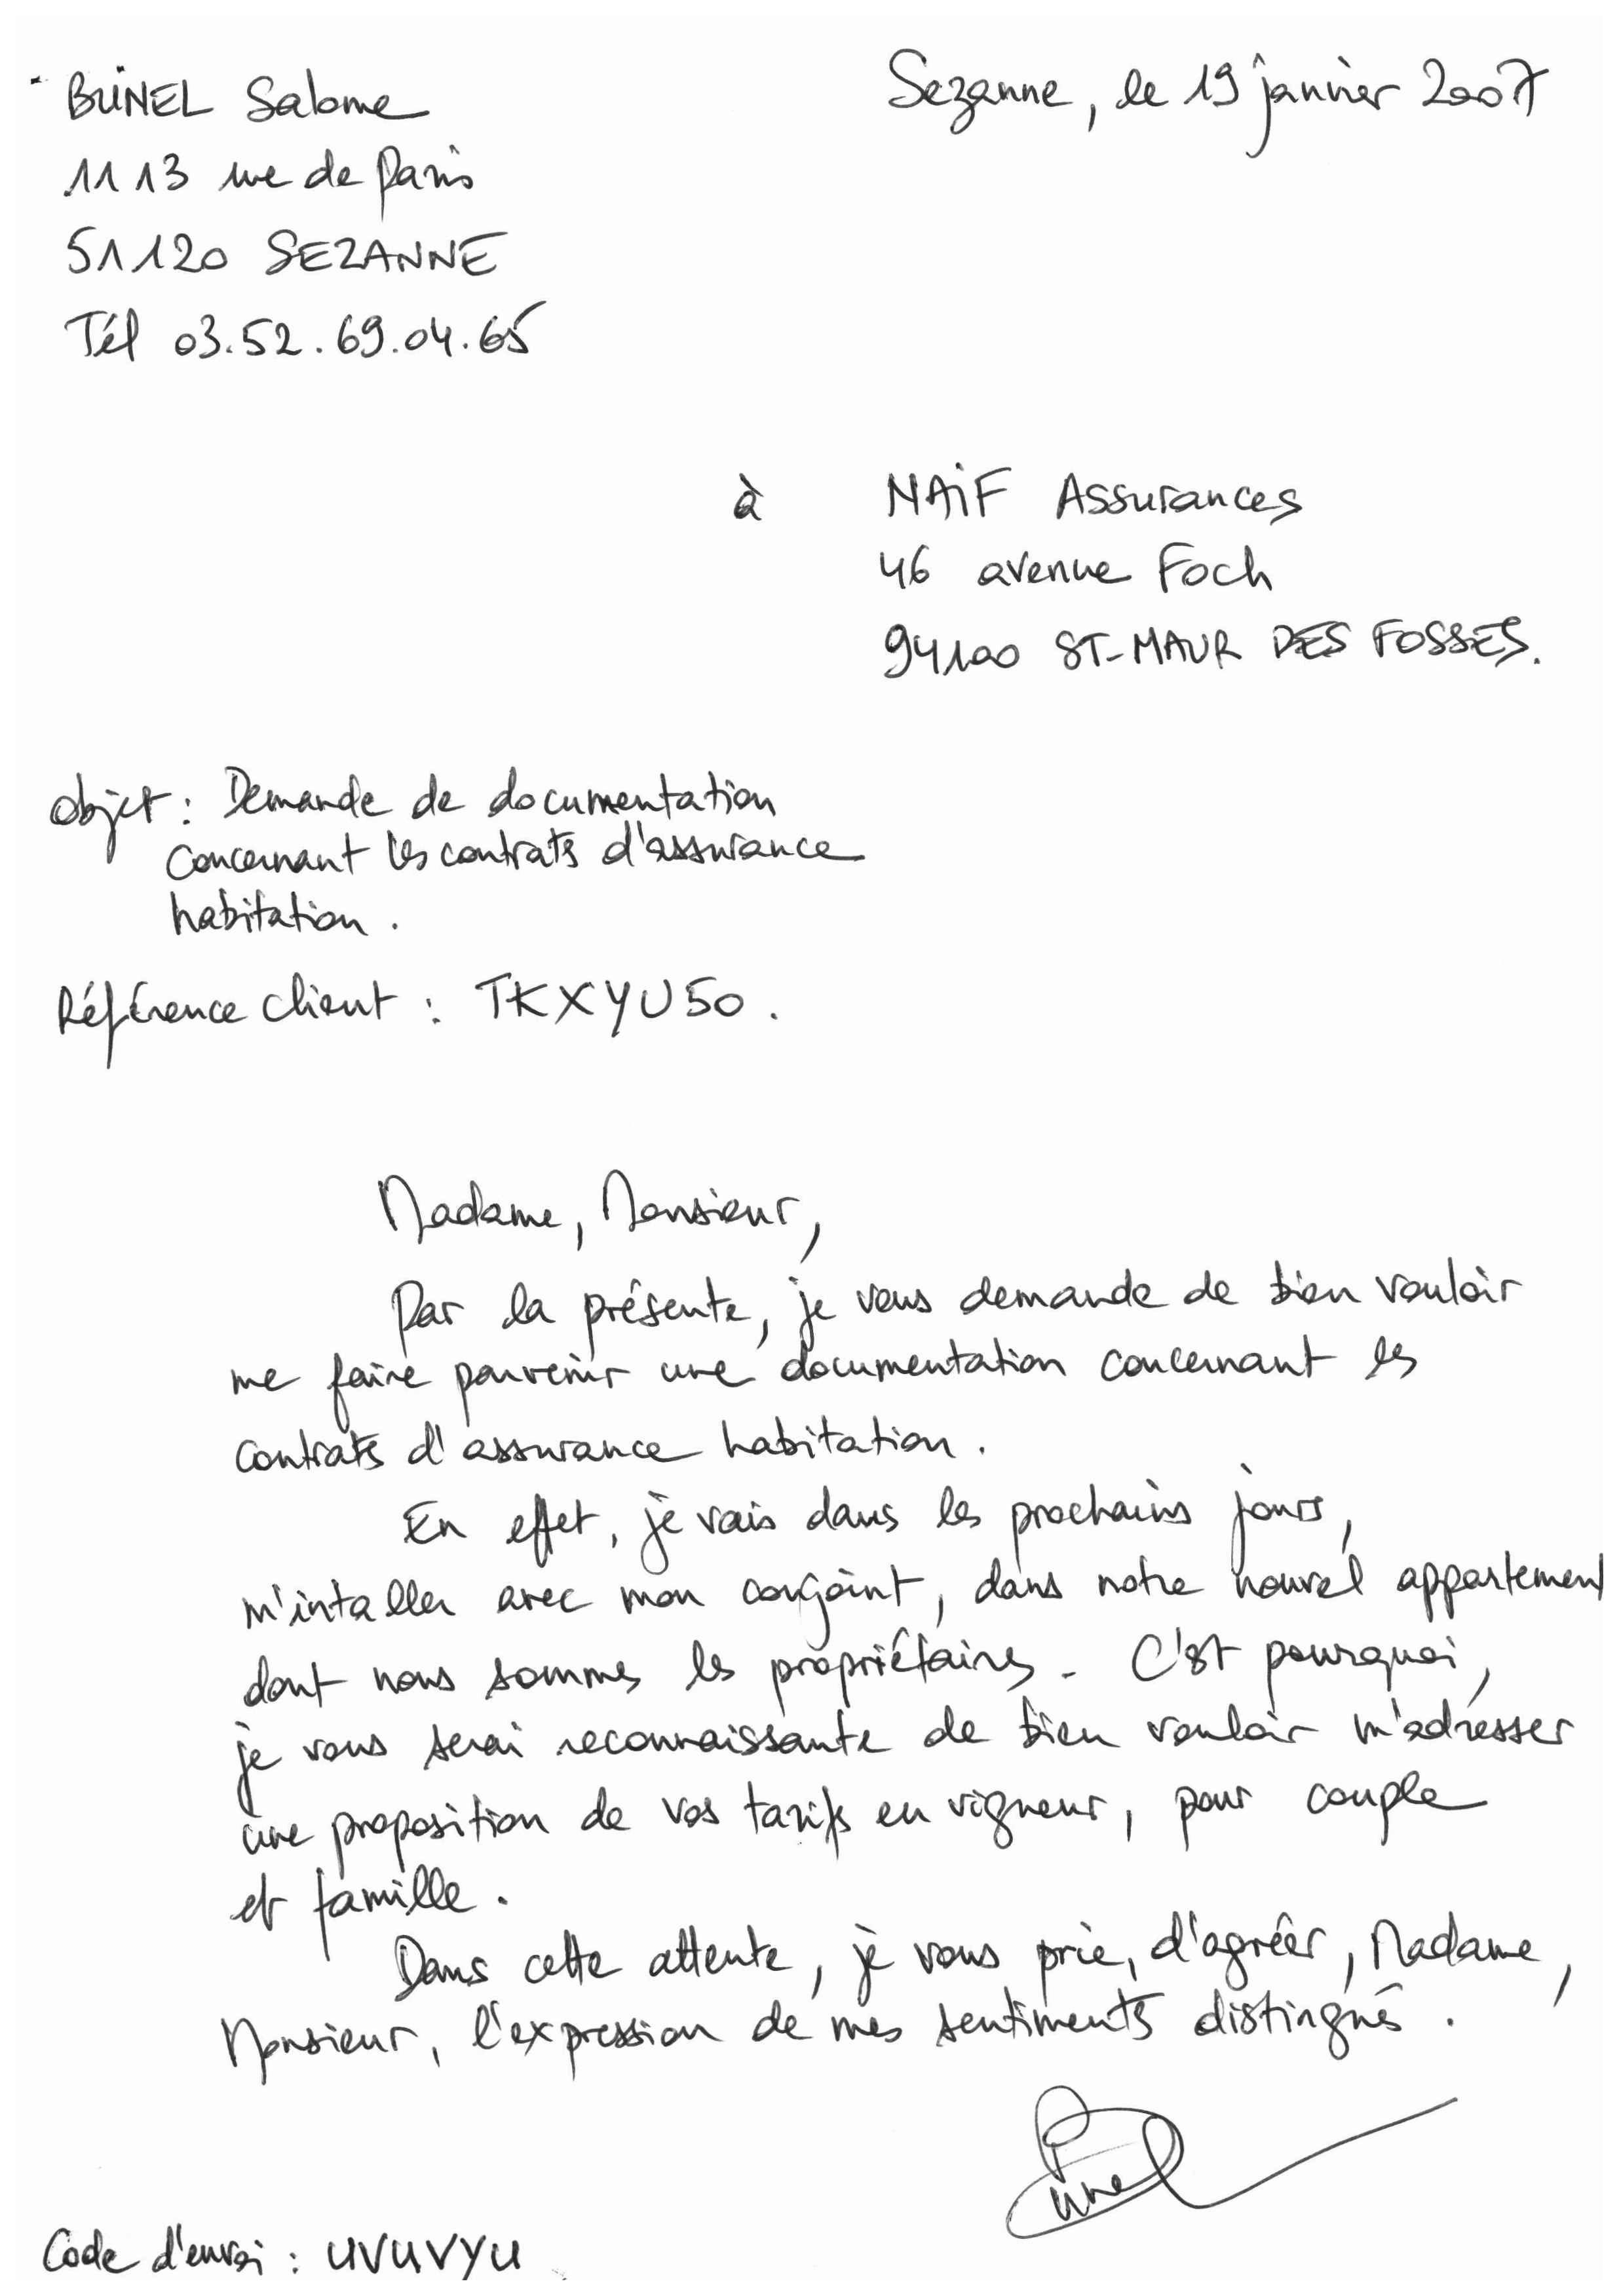 BÜNEL Salome
1113 rue de Paris
51120 SEZANNE
Tél 03.52.69.04.65
Sezanne, le 19 janvier 2007
à NAIF Assurances
46 avenue Foch
94100 ST-MAUR DES FOSSES.
objet : Demande de documentation
concernant les contrats d'assurance
habitation.
Référence client : TKXYU50.
Madame, Monsieur,
Par la présente, je vous demande de bien vouloir
me faire parvenir une documentation concernant les
contrats d'assurance habitation.
En effet, je vais dans les prochains jours,
m'intaller avec mon conjoint, dans notre nouvel appartement
dont nous sommes les propriétaires. C'est pourquoi,
je vous serai reconnaissante de bien vouloir m'adresser
une proposition de vos tarifs en vigueur, pour couple
et famille.
Dans cette attente, je vous prie, d'agréer, Madame,
Monsieur, l'expression de mes sentiments distingués.
Bünel
Code d'envoi : UVUVYU